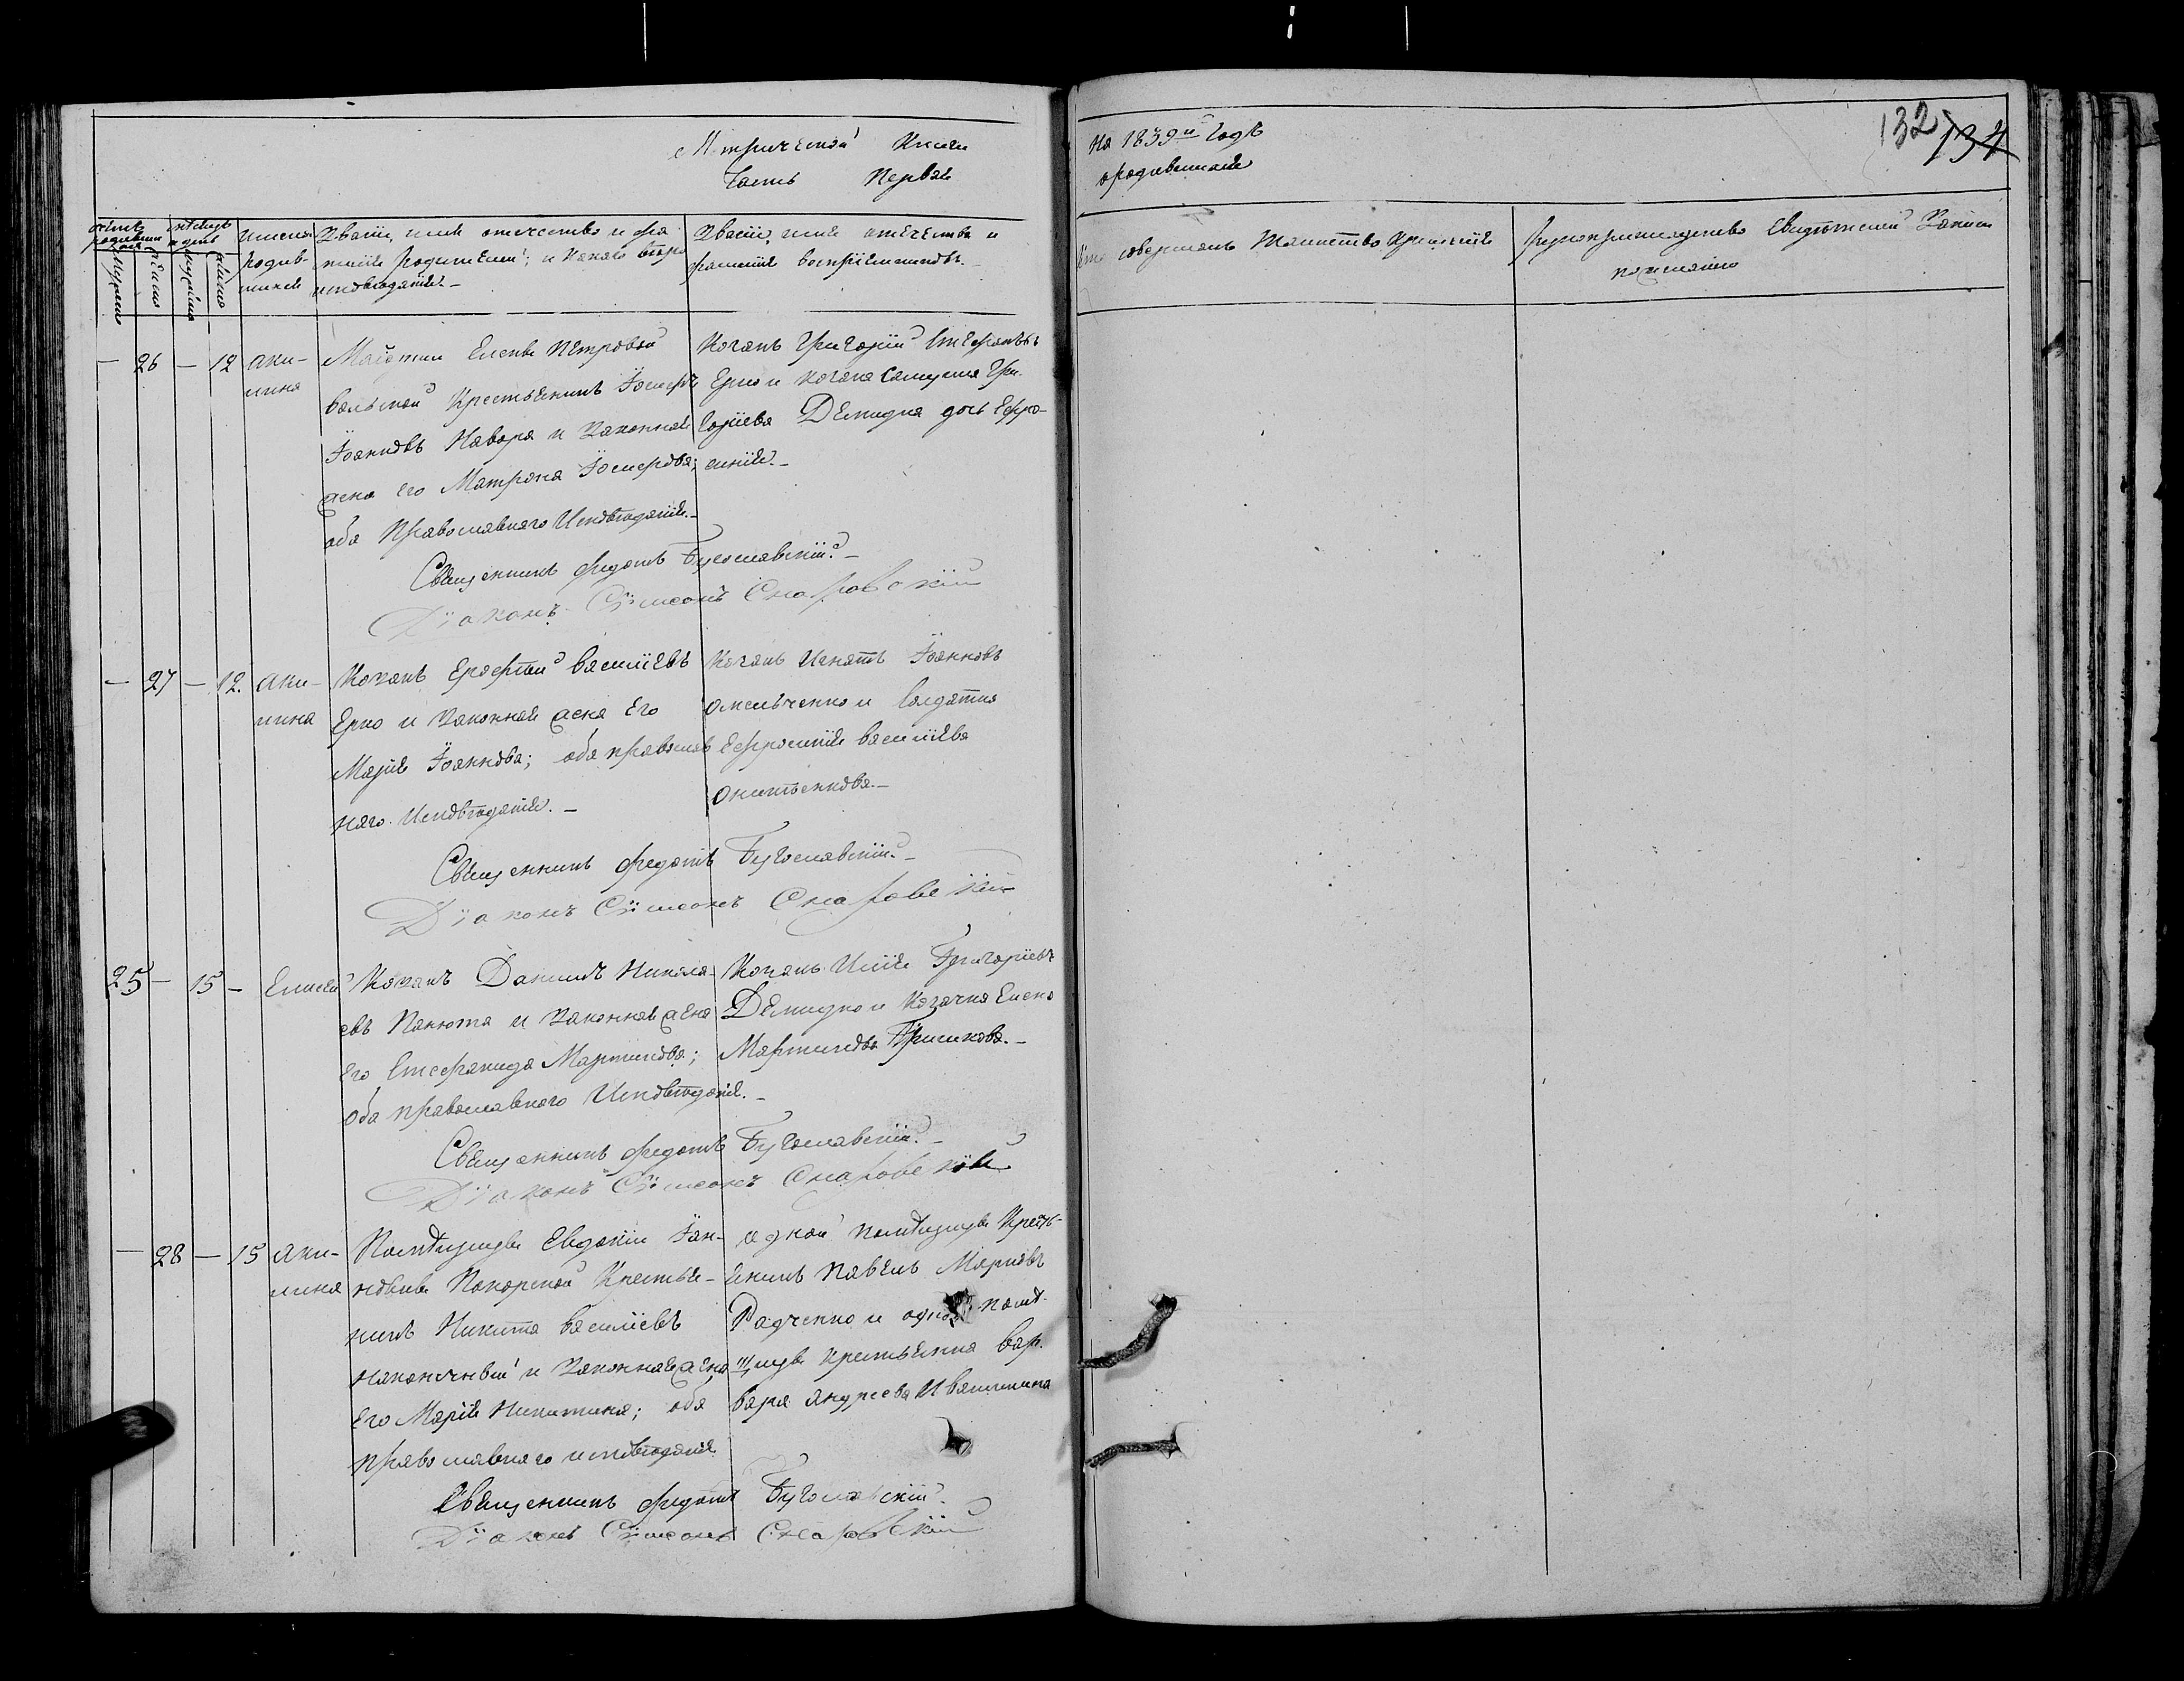 Метрической Книги
Часть Первая
На 1839й Годъ
о родившихся
132 134
Мужеска
Женска
имена родив-
шихся
Звание, имя отечество и фа
милия родителей, и какого веро
исповѣдания.
Звание, имя отечество и
фамилия восприемниковъ.
Кто совершалъ Таинство Крещения
Рукоприкладство Свидѣтелей Записи
по желанию
— 26 — 12 Аки-
лина
Маіорши Елены Петровой
Крестьянинъ Іосифъ
Іоанновъ Навара и Законная
жена его Матрона Іосифова;
оба Православнаго Исповѣдания.
Козакъ Григорій Стефановъ
Ерко и Козака Григо-
ріева Демидка дочь Ефро-
синия.
Священникъ Федотъ Бугославскій.
Діаконъ Сѵмеонъ Снаровскій
— 27 — 12. Аки-
лина
Козакъ Ерофѣй Василіевъ
Ерко и Законная жена Его
Мария Іоаннова; оба православ
наго Исповѣдания.
Козакъ Игнатъ Іоанновъ
Омельченко и Солдатка
Ефросиния Василіева
Онитенкова.
Священникъ Федотъ Бугославскій.
Діаконъ Сѵмеонъ Снаровскій
25 — 15 — Елисей
Козакъ Даниилъ Никола-
евъ Панюта и Законная жена
Его Стефанида Мартинова;
оба православнаго Исповѣдания.
Козакъ Илия Григоріевъ
Демидко и Козачка Елена
Мартинова Гришкова.
Священникъ Федотъ Бугославскій.
Діаконъ Сѵмеонъ Снаровскій
— 28 — 15 Аки-
лина
Помѣщицы Евдокии Іоан-
новны Покорской Крестья-
нинъ Никита Василіевъ
Наконечный и Законная жена
Его Мария Никитина; оба
православнаго исповѣдания
одной помѣщицы Кресть-
янинъ Павелъ Марковъ
Радченко и одной помѣ-
щицы крестьянка Вар-
вара Андреева Ивашина
Священникъ Федотъ Бугославскій.
Діаконъ Сѵмеонъ Снаровскій